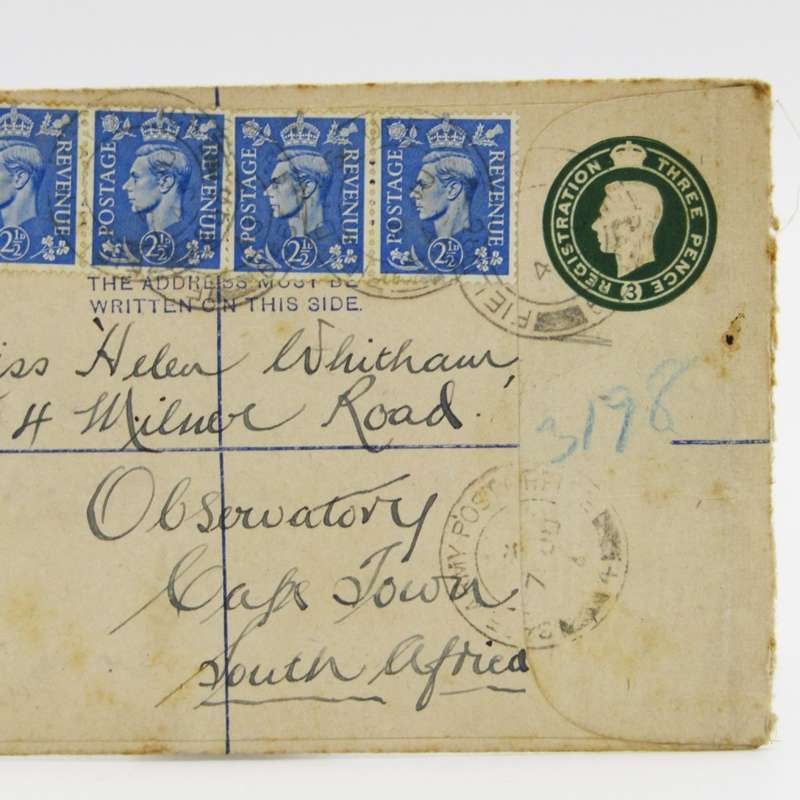 POSTAGE REVENUE 2½D
POSTAGE REVENUE 2½D
POSTAGE REVENUE 2½D
REVENUE 2½D
REGISTRATION THREE PENCE
3
THE ADDRESS MUST BE
WRITTEN ON THIS SIDE.
iss Helen Whitham
4 Milner Road.
3198
Observatory
Cape Town
South Africa
FIEL
ARMY POST